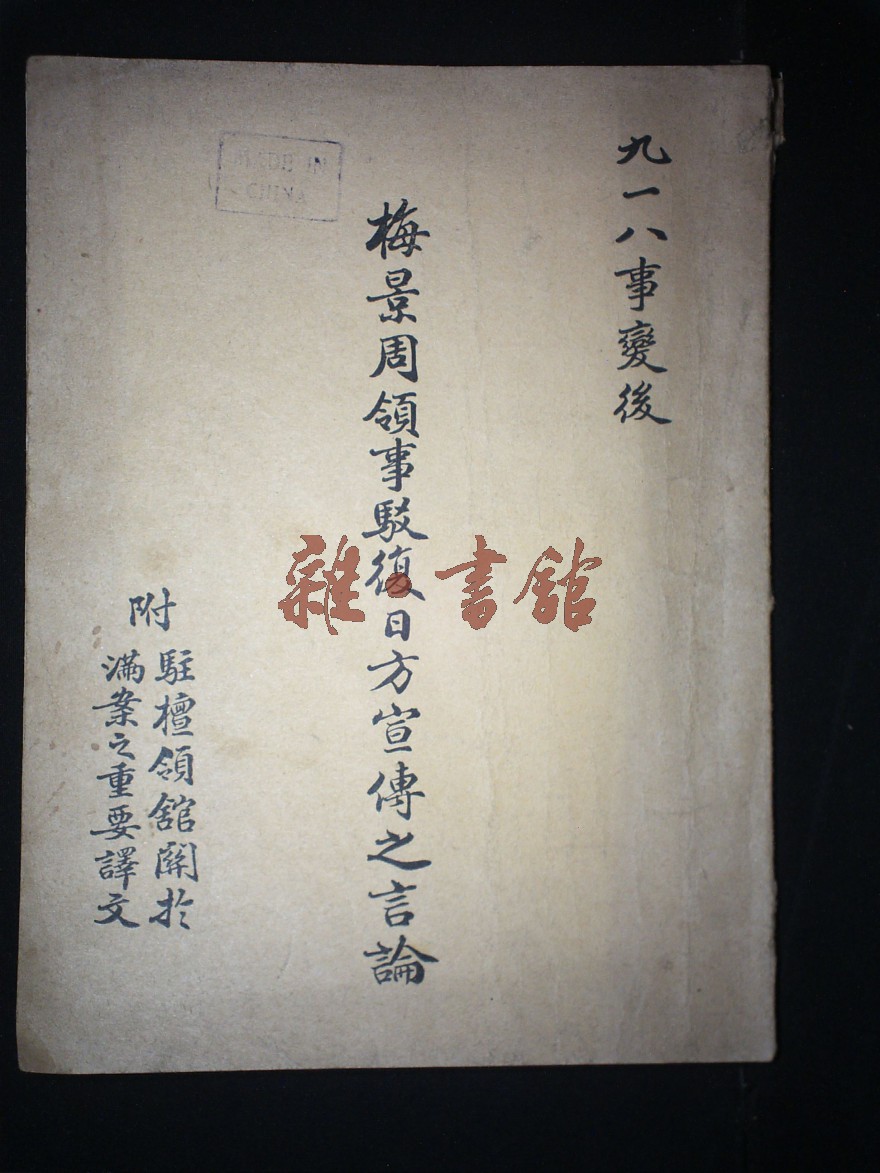 九一八事變後
梅景周領事駁復日方宣傳之言論
附
駐檀領舘關於
滿案之重要譯文
MADE IN
CHINA
雜·書舘